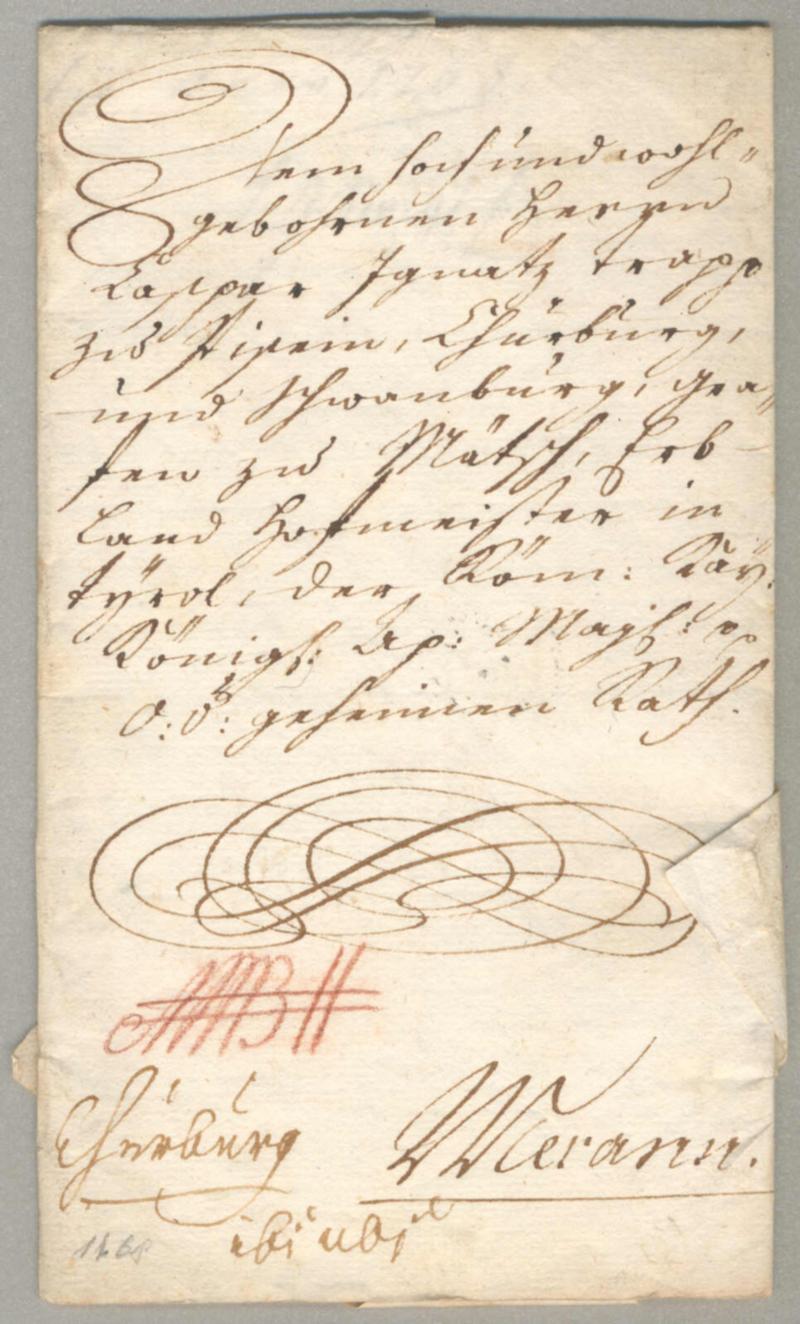 Dem Hoch und wohl=
gebohrnen Herrn
Caspar Ignatz trapp
zu Pisein, Churburg,
und schwanburg, Gra=
fen zu Mätsch, Erb
Land Hofmeister in
tÿrol, der Röm: Kaÿ:
Königl: Ap: Majt:
O: Ö: geheimen Rath.
Churburg Merann.
ibi ubi